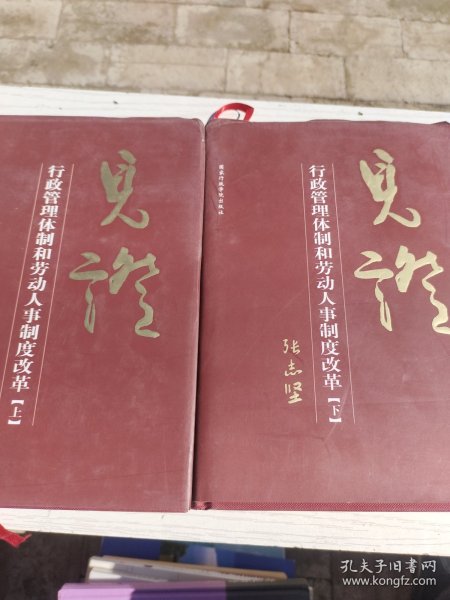 見證
行政管理体制和劳动人事制度改革【上】
国家行政学院出版社
見證
行政管理体制和劳动人事制度改革【下】
张志坚
孔夫子旧书网
www.kongfz.com